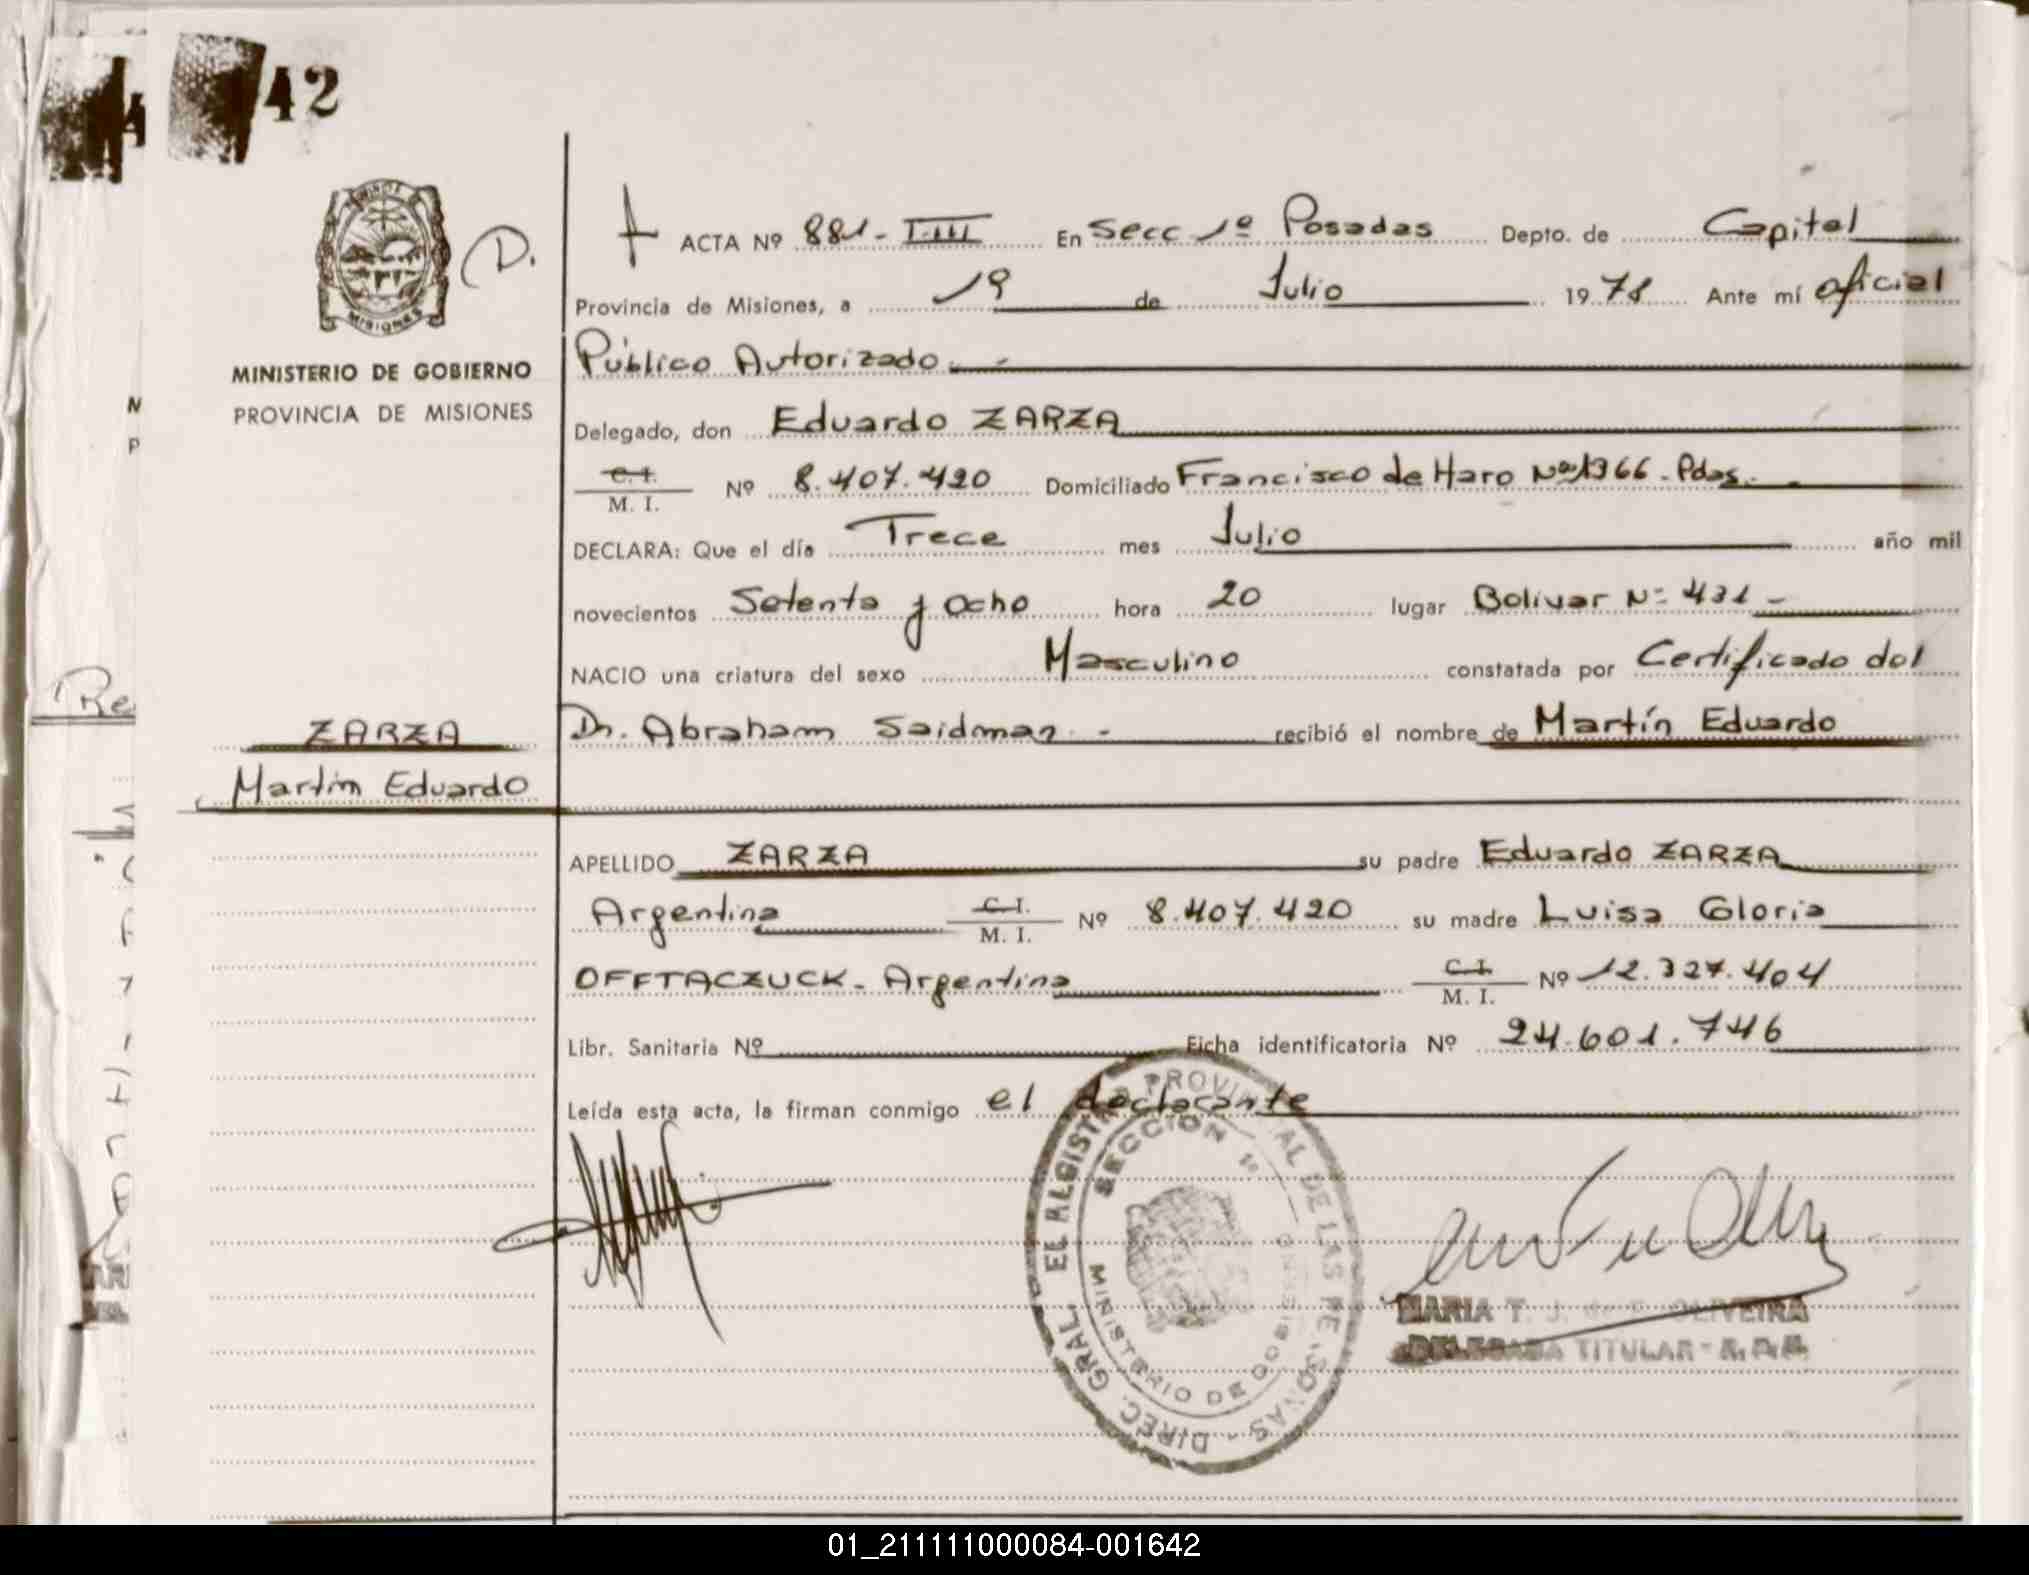 42
MISIONES
D.
MINISTERIO DE GOBIERNO
PROVINCIA DE MISIONES
ACTA Nº 881 - T-III En Secc 1º Posadas Depto. de Capital
Provincia de Misiones, a 19 de Julio 1978 Ante mí oficial
Público Autorizado. -
Delegado, don Eduardo ZARZA
C. I.
M. I. Nº 8.407.420 Domiciliado Francisco de Haro Nº 1366 - Pdas.
DECLARA: Que el día Trece mes Julio año mil
novecientos Setenta y ocho hora 20 lugar Bolivar Nº 431 -
NACIO una criatura del sexo Masculino constatada por Certificado del
Dr. Abraham Saidman - recibió el nombre de Martín Eduardo
ZARZA
Martín Eduardo
APELLIDO ZARZA su padre Eduardo ZARZA
Argentina C. I.
M. I. Nº 8.407.420 su madre Luisa Gloria
OFFTACZUCK - Argentina C. I.
M. I. Nº 12.327.404
Libr. Sanitaria Nº Ficha identificatoria Nº 24.601.746
Leída esta acta, la firman conmigo el declarante
DIREC. GRAL. EL REGISTRO PROVINCIAL DE LAS PERSONAS -
SECCION 1º
MINISTERIO DE GOBIERNO
MARIA T. J. de OLIVEIRA
DELEGADA TITULAR
Re
01_211111000084-001642